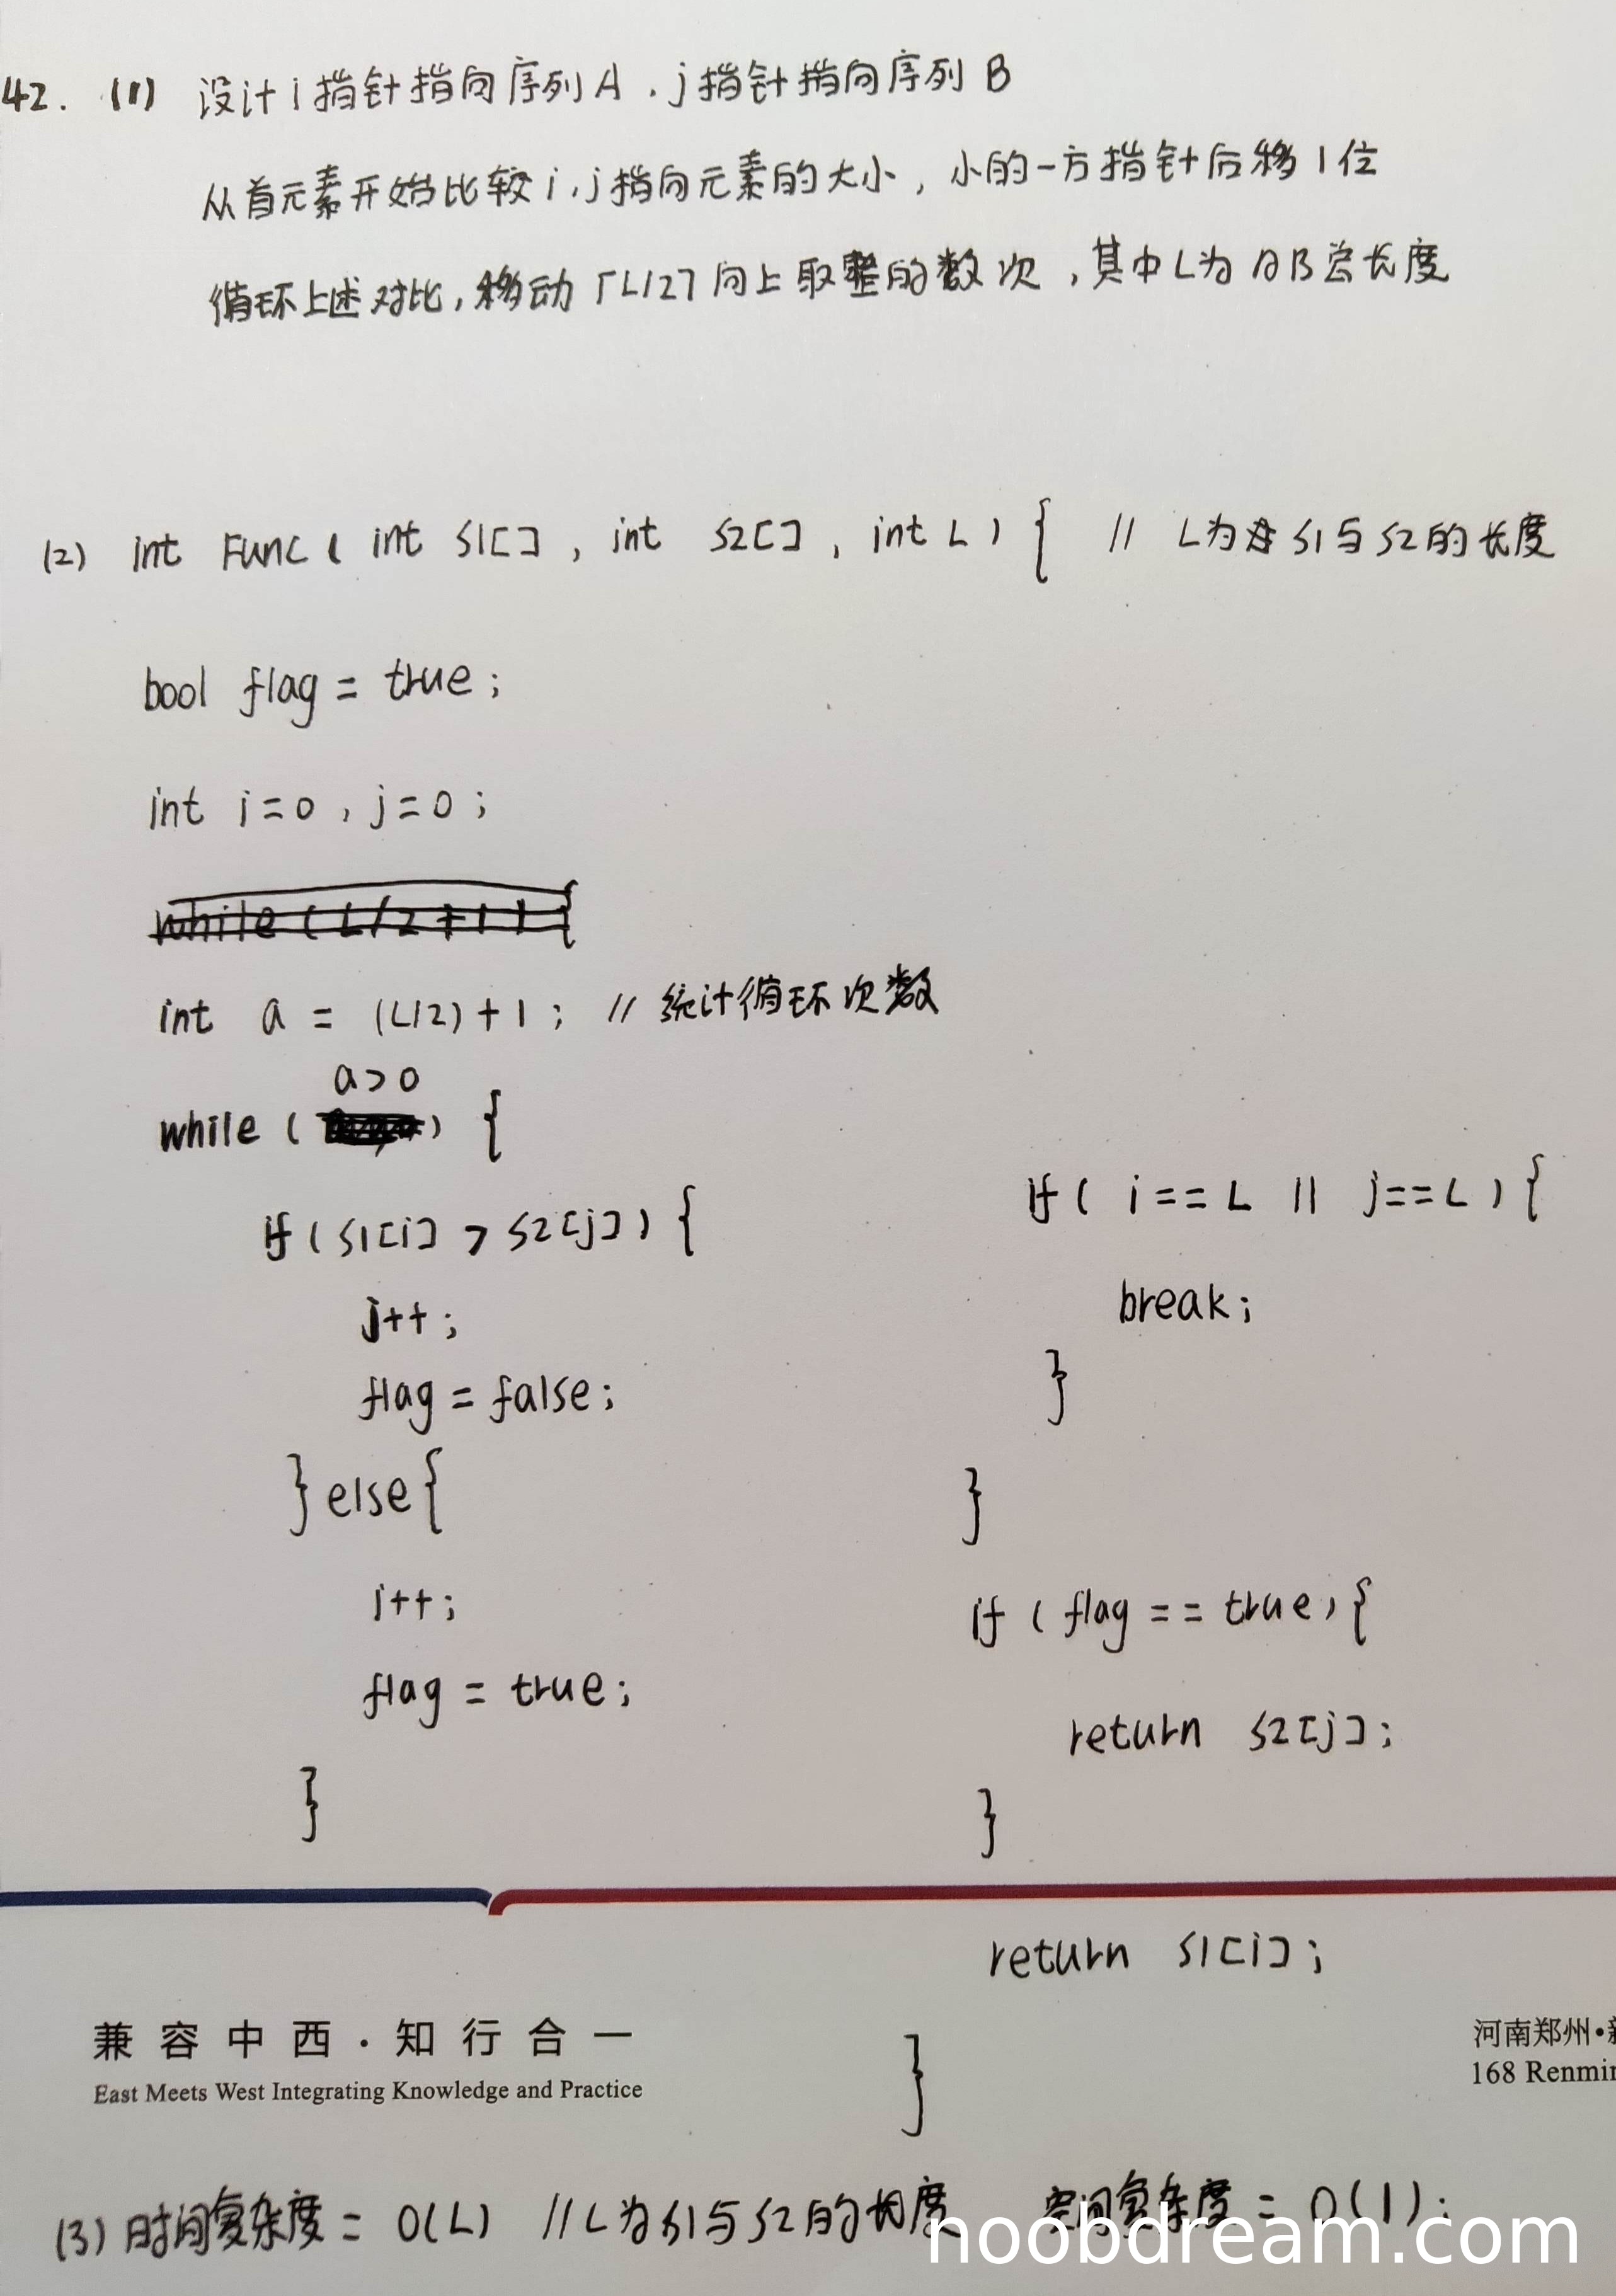 42. (1) 设计i指针指向序列A,j指针指向序列B
从首元素开始比较i,j指向元素的大小,小的一方指针后移1位
循环上述对比,移动⌈L/2⌉向上取整的数次,其中L为AB总长度
(2) int Func( int S1[], int S2[], int L) { // L为S1与S2的长度
bool flag = true;
int i=0, j=0;
while(L/2+1){
int a = (L/2)+1; // 统计循环次数
a>0
while ( ) {
if(S1[i] > S2[j]) {
j++;
flag = false;
} else {
i++;
flag = true;
}
if( i==L || j==L ) {
break;
}
}
if ( flag == true) {
return S2[j];
}
return S1[i];
}
兼容中西·知行合一
East Meets West Integrating Knowledge and Practice
河南郑州·
168
(3) 时间复杂度 = O(L) // L为S1与S2的长度 空间复杂度 = O(1);
noobdream.com